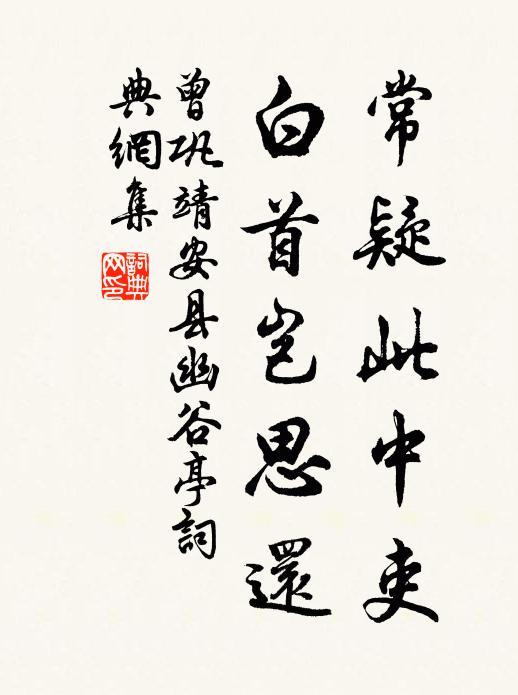 常疑此中吏
白首岂思還
曾巩靖安县幽谷亭詞
典網集
詞典網印